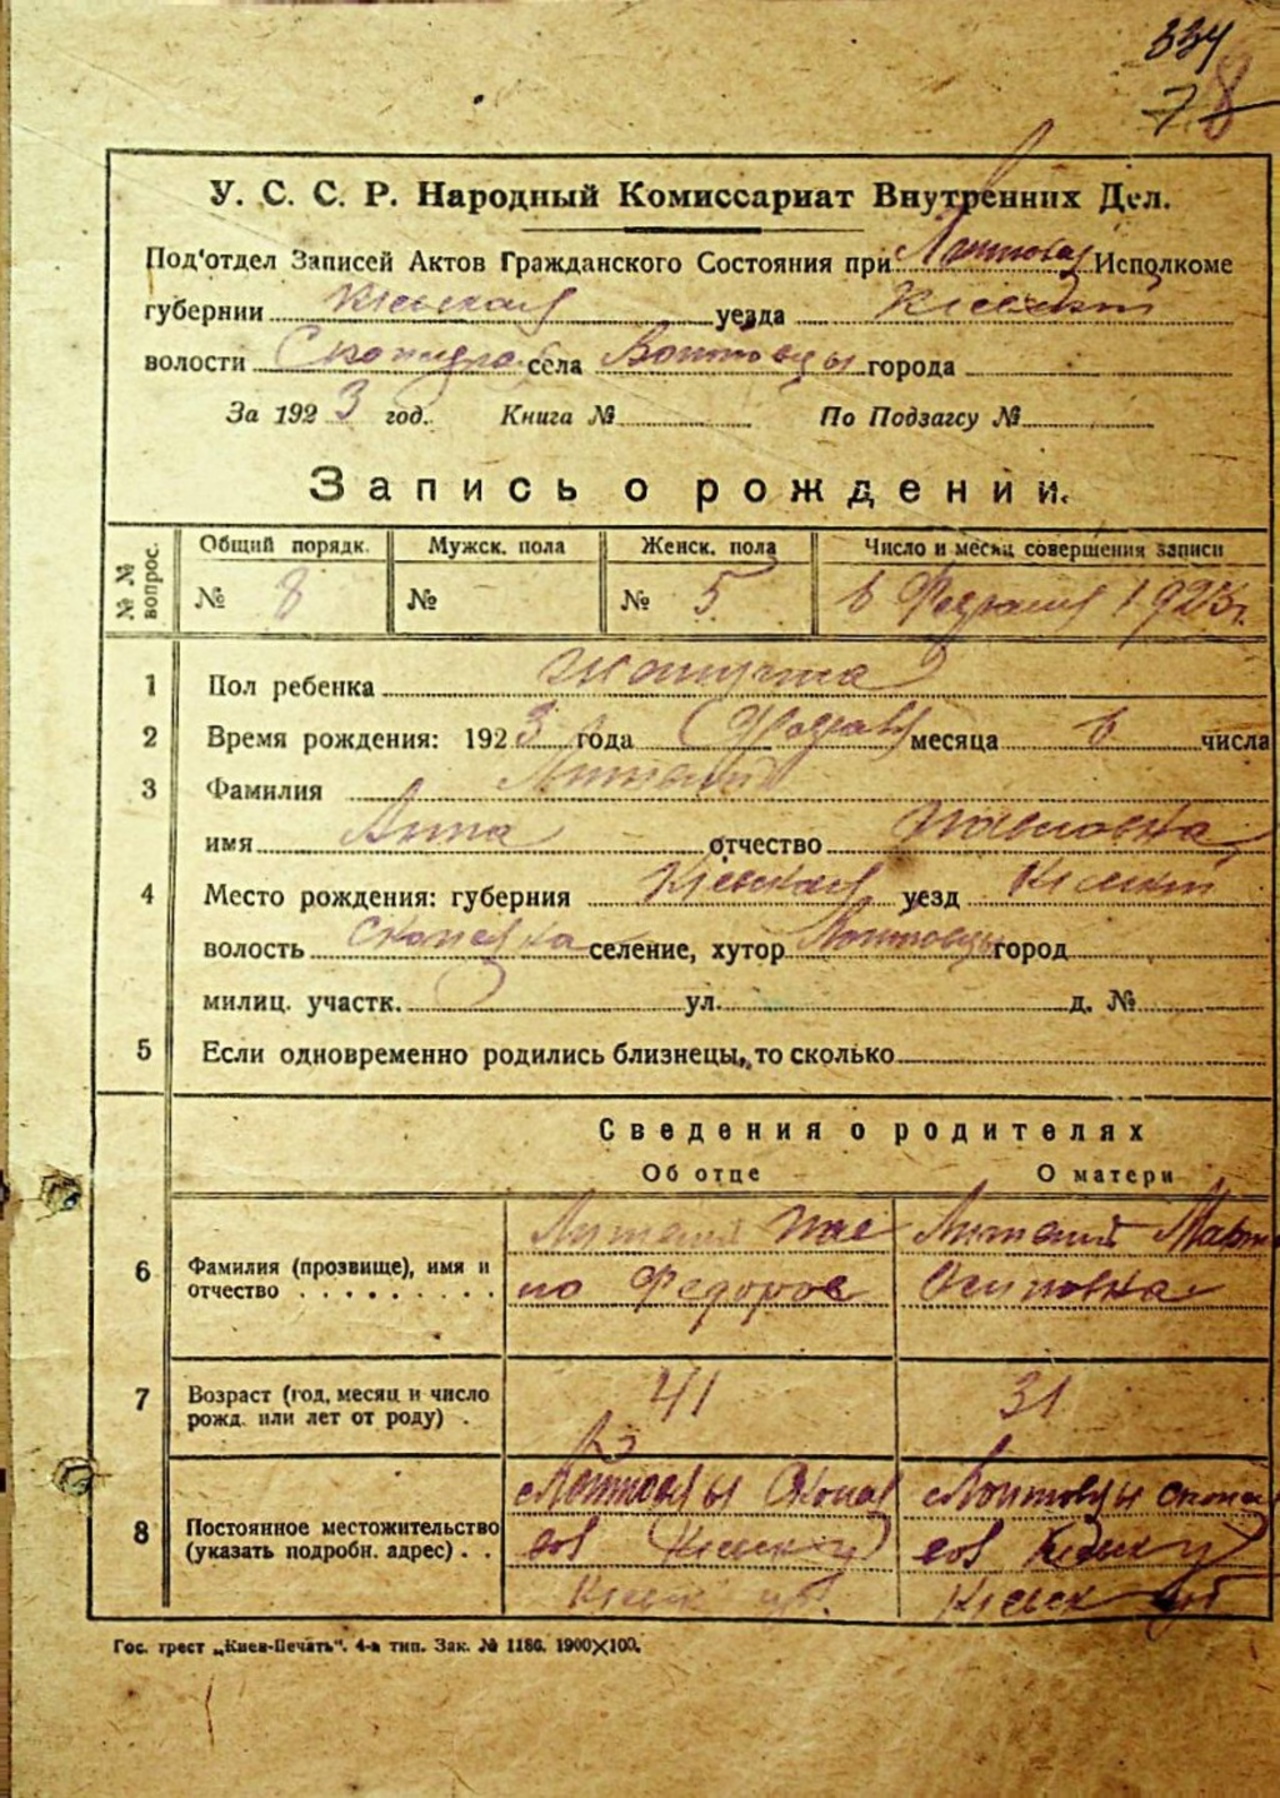 334
7 8
У. С. С. Р. Народный Комиссариат Внутренних Дел.
Под'отдел Записей Актов Гражданского Состояния при Исполкоме
губернии Кіевская уезда Кіевский
волости села Войтовцы города
За 1923 год. Книга № По Подзагсу №
Запись о рождении.
№ № вопрос. Общий порядк. Мужск. пола Женск. пола Число и месяц совершения записи
№ 8 № № 5 6 Февраля 1923 г.
1 Пол ребенка
2 Время рождения: 1923 года Февраля месяца 6 числа
3 Фамилия
имя Анна отчество Павловна
4 Место рождения: губерния Кіевская уезд Кіевский
волость селение, хутор Войтовцы город
милиц. участк. ул. д. №
5 Если одновременно родились близнецы, то сколько
Сведения о родителях
Об отце О матери
6 Фамилия (прозвище), имя и отчество
Федоров Осиповна
7 Возраст (год, месяц и число рожд. или лет от роду) . 41 31
8 Постоянное местожительство (указать подробн. адрес) . .
Войтовцы Войтовцы
Кіевск у Кіевск у
Кіевск губ. Кіевск губ
Гос. трест „Киев-Печать". 4-я тип. Зак. № 1186. 1900×100.